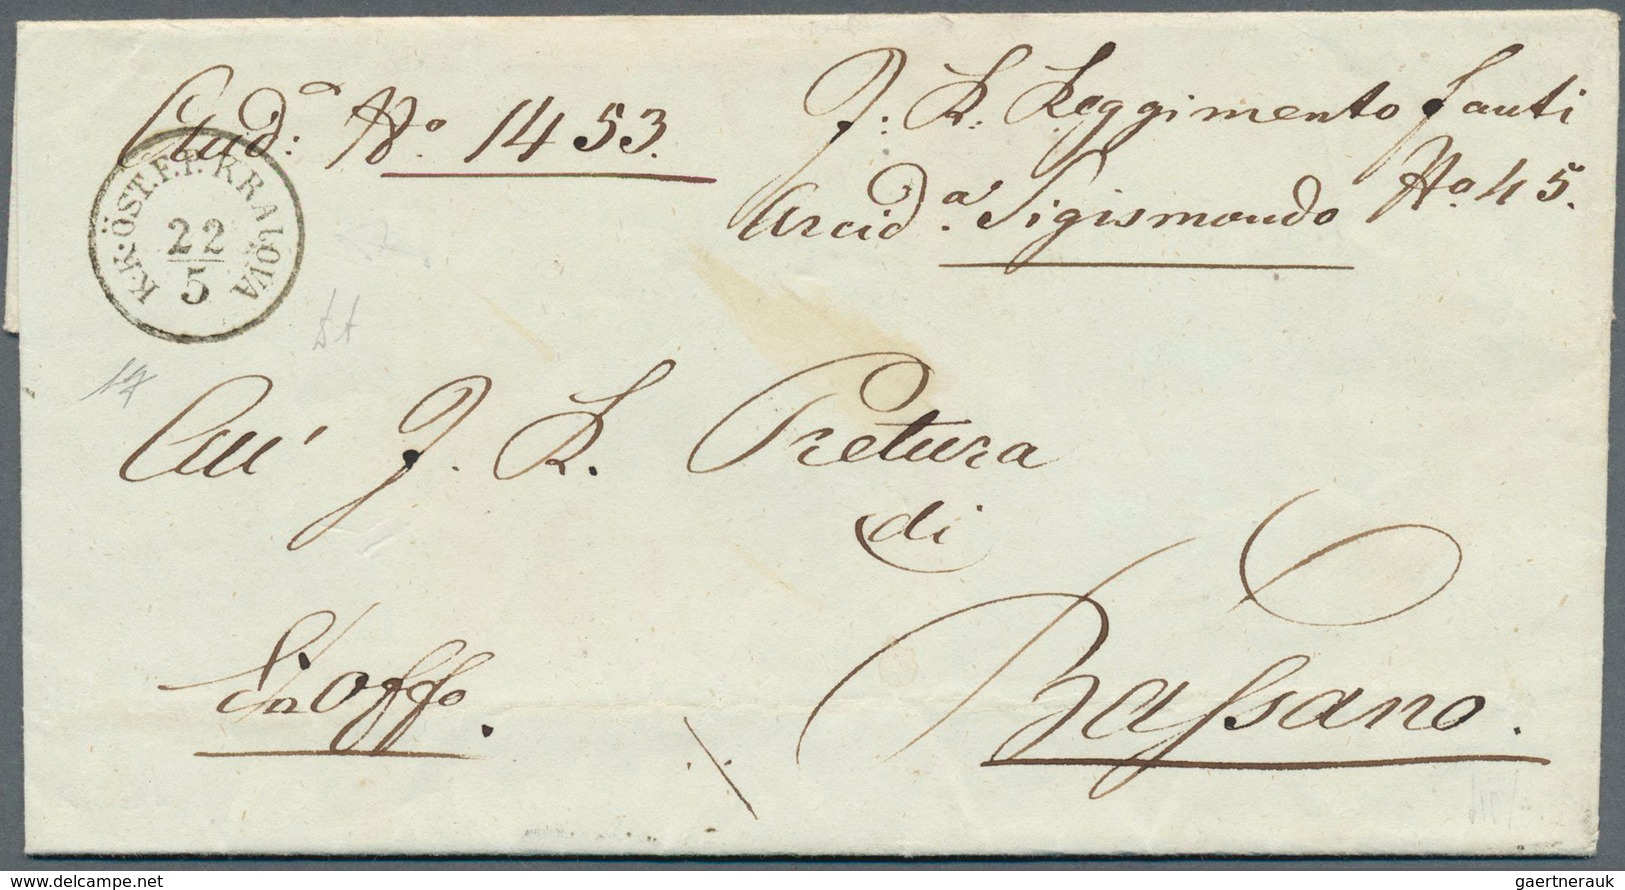 Aud.ª No. 1453.
I. R. Reggimento fanti
Arcid.ª Sigismondo No 45.
K.K. ÖST. F.P. KRALOVA
22
5
All' I. R. Pretura
di
Bassano.
in offo.
gaertnerauk